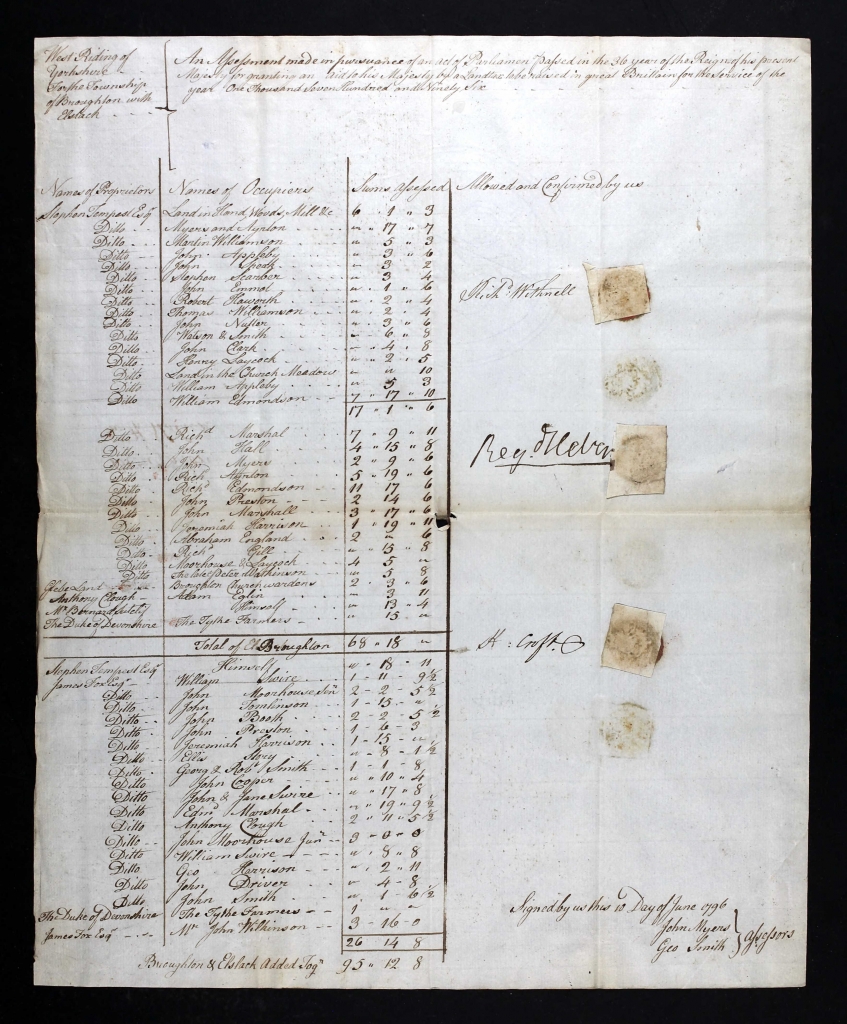 West Riding of
Yorkshire
For the Township
of Broughton with
Elslack
An Assessment made in pursuance of an act of Parliament passed in the 36 year of the Reign of his present
Majesty for granting an Aid to his Majesty by a Landtax to be raised in great Brittain for the Service of the
year One Thousand Seven Hundred and Ninety Six
Names of Proprietors Names of Occupiers Sums Assessed Allowed and Confirmed by us
Stephen Tempest Esqr Land in Hand, Woods, Mill &c 6 " 1 " 3
Ditto Myers and Ayrton " 17 " 7
Ditto Martin Williamson " 5 " 3
Ditto John Appleby " 3 " 6
Ditto John Speak " 3 " 2
Ditto Stephen Scarber " 3 " 4
Ditto John Emmot " 1 " 6
Ditto Robert Haworth " 2 " 4
Richd Withnell
Ditto Thomas Williamson " 2 " 4
Ditto John " 3 " 6
Ditto Watson & Smith " 6 " 8
Ditto John Clark " 4 " 8
Ditto Henry Laycock " 2 " 5
Ditto Land in the Church Meadow " " 10
Ditto William Appleby " 5 " 3
Ditto William Edmondson 7 " 17 " 10
17 " 1 " 6
Ditto Richd Marshal 7 " 9 " 11
Ditto John Hall 4 " 15 " 8
Ditto John Myers 2 " 9 " 6
Regd Heber
Ditto Richd Ayrton 5 " 19 " 6
Ditto Richd Edmondson 11 " 17 " 6
Ditto John Preston 2 " 14 " 6
Ditto John Marshall 3 " 17 " 6
Ditto Jeremiah Harrison 1 " 19 " 11
Ditto Abraham England 2 " " " 6
Ditto Richd Gill " 15 " 8
Ditto Moorhouse & Laycock 4 " 5 "
Ditto The late Peter Watkinson " 5 " 8
Glebe Land Broughton Churchwardens 2 " 3 " 6
Anthony Clough Adam Eglin " 3 " 11
Mr Bernard Himself " 13 " 4
The Duke of Devonshire The Tythe Farmers " 15 "
Total of Broughton 68 " 18 "
H: Croft
Stephen Tempest Esqr Himself " 18 " 11
James Fox Esqr William Swire 1 - 11 - 9½
Ditto John Moorhouse Senr 2 - 2 - 5½
Ditto John Tomlinson 1 - 15 - "
Ditto John Booth 2 - 2 - 5½
Ditto John Preston 1 - 6 - 3
Ditto Jeremiah Harrison 1 - 15 - "
Ditto Ellis Story " - 8 - 1½
Ditto Georg & Robt Smith 1 - 1 - 8
Ditto John Cooper " 10 " 4
Ditto John & Jane Swire " 17 " 8
Ditto Edmd Marshal " 19 " 9½
Ditto Anthony Clough 2 " 11 " 5½
Ditto John Moorhouse Junr 3 - 0 - 0
Ditto William Swire " 8 " 8
Ditto Geo Harrison " 2 " 11
Ditto John Driver " 4 - 8
Ditto John Smith " 1 - 6½
The Duke of Devonshire The Tythe Farmers 1 - "
James Fox Esqr Mr John Wilkinson 3 - 16 - 0
26 14 8
Broughton & Elslack Added Togr 95 " 12 8
Signed by us this 10 Day of June 1796
John Myers
Geo Smith
Assessors